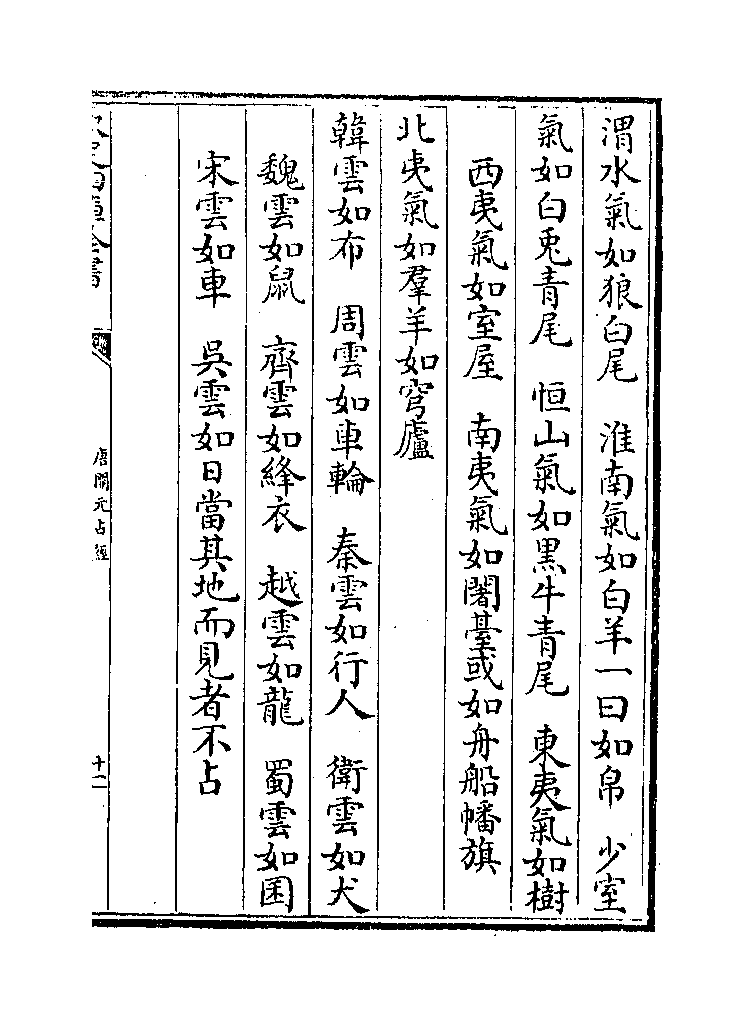 渭水氣如狼白尾　淮南氣如白羊一曰如帛　少室
氣如白兎青尾　恒山氣如黒牛青尾　東夷氣如樹
西夷氣如室屋　南夷氣如闍䑓或如舟船幡旗
北夷氣如羣羊如穹廬
韓雲如布　周雲如車輪　秦雲如行人　衛雲如犬
魏雲如鼠　齊雲如絳衣　越雲如龍　蜀雲如囷
宋雲如車　吳雲如日當其地而見者不占
唐開元占經
十二